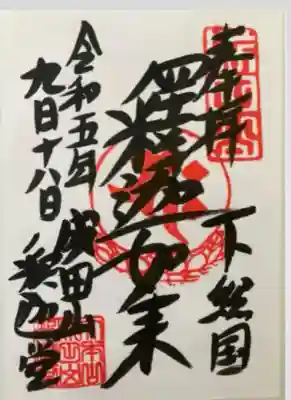 奉拝
下総国
釋迦如来
成田山
釈迦堂
令和五年
九月十八日